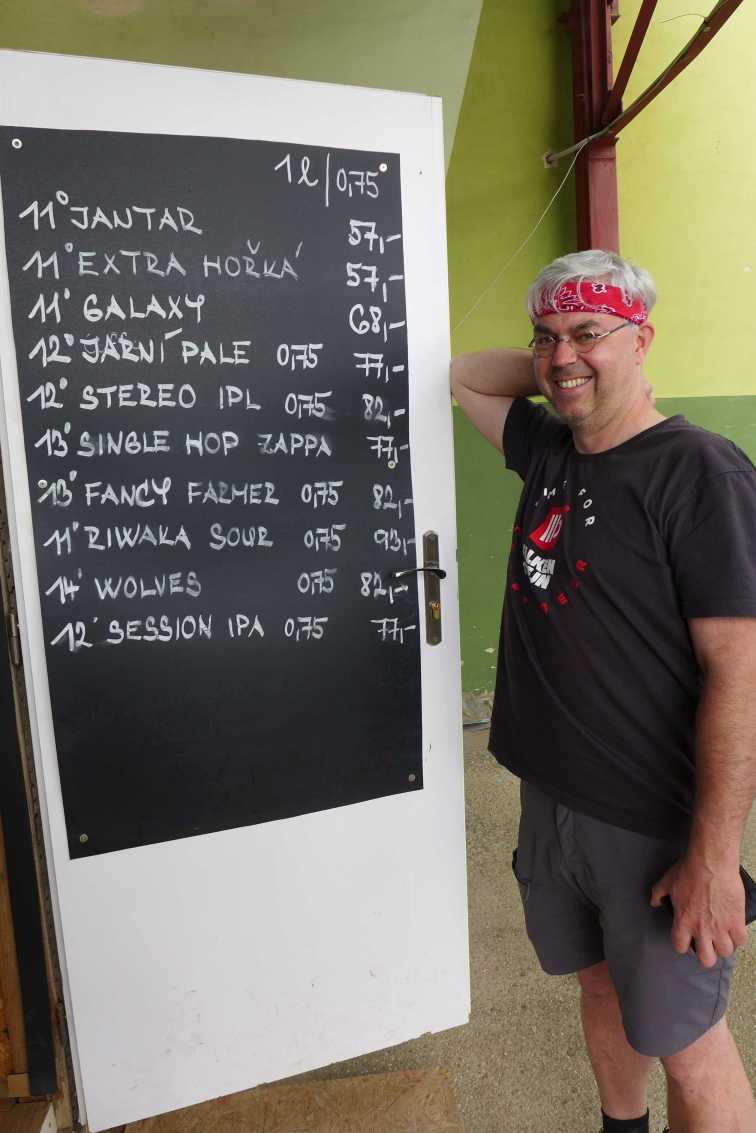 1l/0,75
11° JANTAR 57,-
11° EXTRA HOŘKÁ 57,-
11° GALAXY 68,-
12° JARNÍ PALE 0,75 77,-
12° STEREO IPL 0,75 82,-
13° SINGLE HOP ZAPPA 77,-
13° FANCY FARMER 0,75 82,-
11° RIWAKA SOUR 0,75 93,-
14° WOLVES 0,75 82,-
12° SESSION IPA 0,75 77,-
FOR